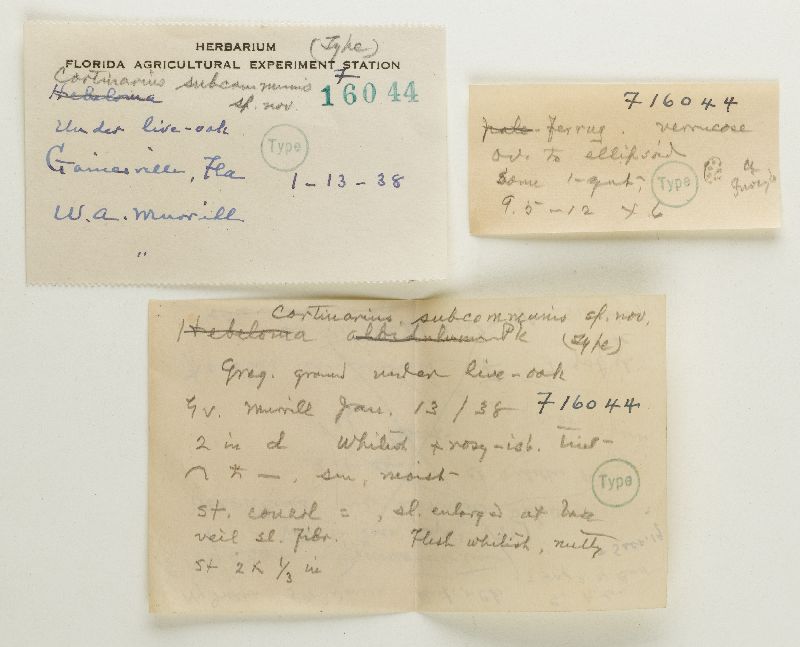 HERBARIUM (Type)
FLORIDA AGRICULTURAL EXPERIMENT STATION
Cortinarius subcommunis F 16044
Hebeloma sp. nov.
Under live-oak
Type
Gainesville, Fla
1-13-38
W.A. Murrill
"
F16044
pale Ferrug. verrucose
ov. to ellipsoid
some 1-gut;
Type
9.5-12 x 6
Cortinarius subcommunis sp. nov.
Hebeloma Pk (Type)
Greg. ground under live-oak
Gv. Murrill Jan. 13/38 F16044
2 in d Whitish & rosy-isb. tint-
sm, moist
Type
st. concol = , sl. enlarged at base
veil sl. fibr. Flesh whitish, nutty
st 2 x 1/3 in